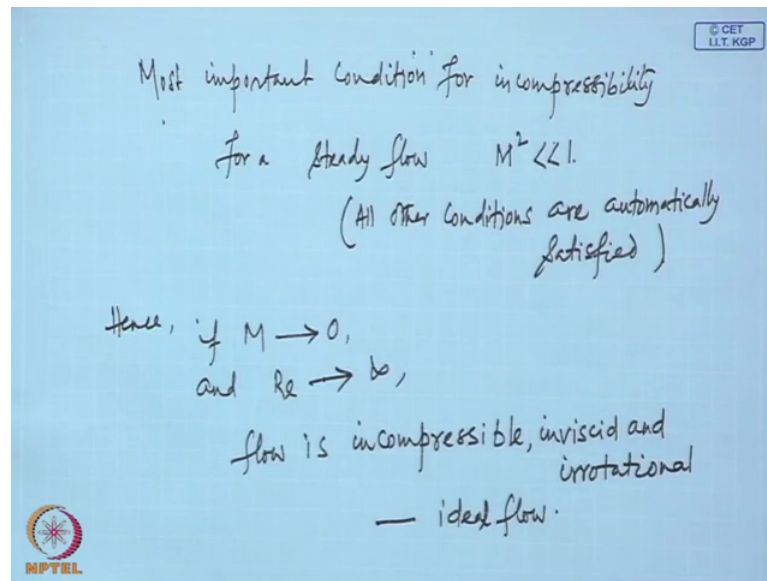 © CET
I.I.T. KGP
Most important Condition for incompressibility
for a steady flow M² << 1.
(All other conditions are automatically
satisfied)
Hence, if M → 0,
and Re → ∞,
flow is incompressible, inviscid and
irrotational
— ideal flow.
NPTEL